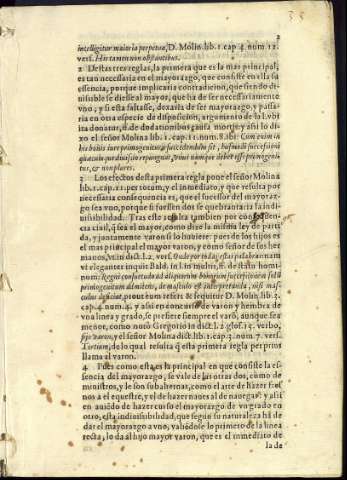 2
intelligitur maior in perpetuũ, D. Molin. lib. 1. cap. 4. num. 12.
vers. His tamen non obstantibus.
2 Destas tres reglas, la primera que es la mas principal,
es tan necessaria en el mayorazgo, que consiste en ella su
essencia, porque implicaria contradicion, que siendo di-
uisible se diesse al mayor, que ha de ser necessariamente
vno, y si esta faltasse, dexaria de ser mayorazgo, y passa-
ria en otra especie de disposicion, argumento de la l. vbi
ita donatur, ff. de donationibus causa mortis, y assi lo di-
xo el señor Molina lib. 1. cap. 11. num. 8. ibi: Cum enim in
his bonis iure primogeniturae succedendum sit, huiusdi successioni
quaecunque diuisio repugnat, vnus namque debet esse primogeni-
tus, & non plures.
3 Los efectos desta primera regla pone el señor Molina
lib. 1. cap. 11. per totum, y el inmediato, y que resulta por
necessaria consequencia es, que el sucessor del mayoraz-
go sea vno, porque si fuessen dos se quebrantaria la indi-
uisibilidad. Tras este resulta tambien por conseque-
cia ciuil, q̃ sea el mayor, como dize la misma ley de parti-
da, y juntamente varon si lo huuiere: pues de los hijos es
el mas principal el mayor varon, y como señor de sus her
manos, vt in dict. l. 2. vers. O
eleganter inquit Bald. in l. in multis, ff. de statu homi-
num: Regni consuetudo ad dispositio
primogenitum admittens, de masculo est interpretanda, nisi mas-
culus deficiat, prout eum refert & sequitur D. Molin. lib. 3.
cap. 4. num. 4. y assi en concurso de varon y hembra de
vna linea y grado, se prefiere siempre el varõ, aunque sea
menor, como notò Gregorio in dict. l. 2. glos. 13. verbo,
varon, y el señor Molina dict. lib. 1. cap. 3. num. 7. vers.
Tertium, de lo qual resulta q̃ esta primera regla per prius
llama al varon.
4 Pues como esta es la principal en que consiste la es-
sencia del mayorazgo, se vale de las otras dos, como de
ministros, y le son subalternas, como el arte de hazer fre-
nos a el equestre, y el de hazer naues al de nauegar: y assi
en auiẽdo de hazer curso el mayorazgo de vn grado en
otro, esta indiuisibilidad, que segun su naturaleza ha de
dar el mayorazgo a vno, valiẽdose lo primero de la linea
recta, lo da al hijo mayor varon, que es el inmediato de
la de